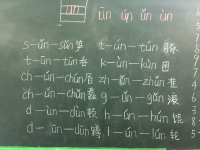 ūn ún ǔn ùn
s-ǔn-sǔn笋 t-ún-tún豚
t-ūn-tūn吞 k-ùn-kùn困
ch-ún-chún唇 zh-ǔn-zhǔn准
ch-ǔn-chǔn蠢 g-ǔn-gǔn滚
d-ùn-dùn顿 h-ún-hún馄
d-ūn-dūn蹲 l-ún-lún轮